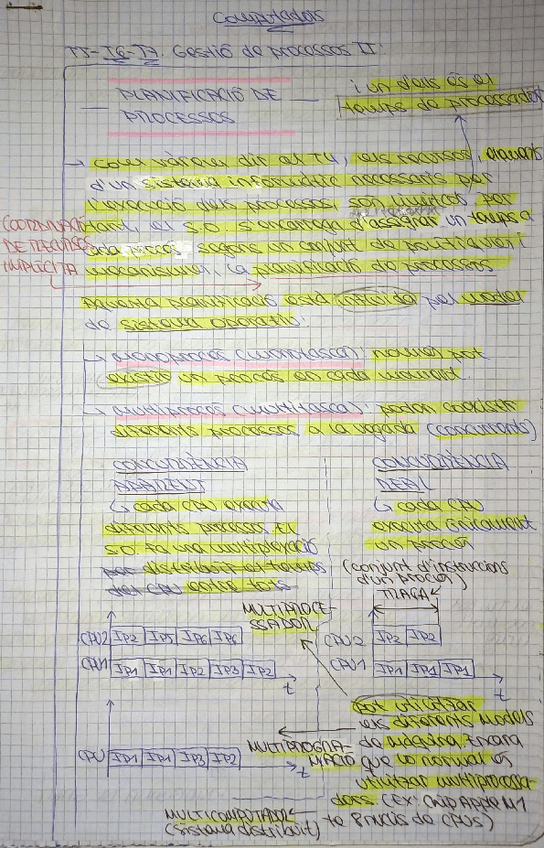 Computadors
T5-T6-T7. Gestió de processos II:
— PLANIFICACIÓ DE PROCESSOS —
i un d'ells és el
temps de processador
→ Com vàrem dir al T4, els recursos
d'un sistema informàtic necessaris per
l'execució dels processos, són limitats. Per
tant, el S.O. s'encarrega d'assignar un temps a
cada procés, segons un conjunt de polítiques i
mecanismes, la planificació de processos
COORDINACIÓ
DE RECURSOS
IMPLÍCITA
Aquesta planificació està pel model
de sistema operatiu:
→ Monoprocés (monotasca): només pot
existir un procés en cada instant.
→ Multiprocés (multitasca): poden coexistir
diferents processos a la vegada (concurrents)
CONCURRÈNCIA
APARENT
↳ cada CPU executa
diferents processos. El
S.O. fa una multiplexació
per distribuir el temps
del CPU entre tots
CONCURRÈNCIA
REAL
↳ cada CPU
executa únicament
un procés
(conjunt d'instruccions
d'un procés)
RÀFAGA
MULTIPROCE-
SSADOR
CPU2 IP2 IP5 IP6 IP6
CPU1 IP1 IP1 IP2 IP3 IP2
t
CPU2 IP2 IP2
CPU1 IP1 IP1 IP1
t
CPU IP1 IP1 IP3 IP2
t
Pot utilitzar
els diferents models
de màquina, encara
que lo normal és
utilitzar multiprocessa-
dors. (Ex: Chip Apple M1
te 8 nuclis de CPUs)
MULTIPROGRA-
MACIÓ
MULTICOMPUTADOR
(sistema distribuït)